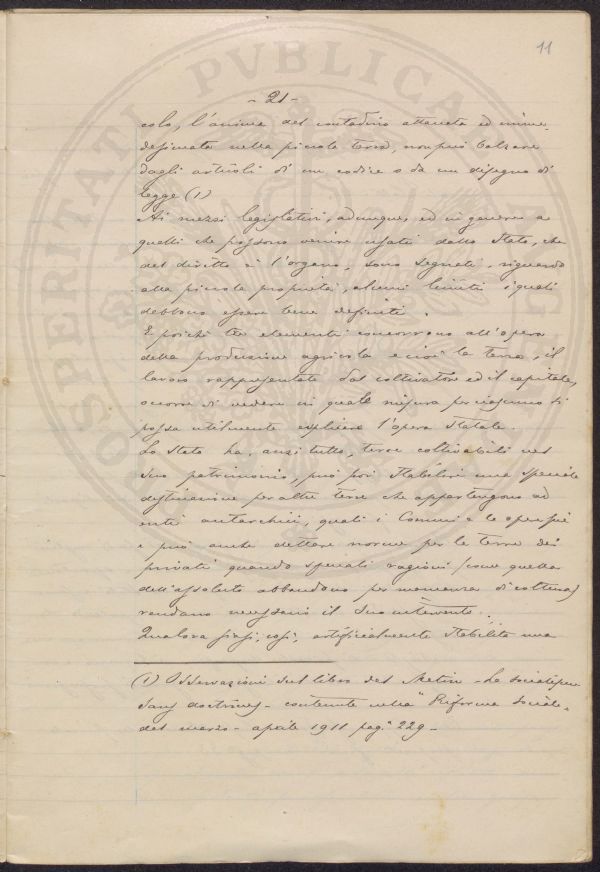 11
- 21 -
colo, l'anima del contadino attaccata ed imme-
desimata nella piccola terra, non può balzare
dagli articoli di un codice o da un disegno di
legge (1)
Ai mezzi legislativi, adunque, ed in genere a
quelli che possono venire usati dallo Stato, che
del diritto è l'organo, sono segnati, riguardo
alla piccola proprietà, alcuni limiti i quali
debbono essere bene definiti.
E poichè tre elementi concorrono all'opera
della produzione agricola e cioè la terra, il
lavoro rappresentato dal coltivatore ed il capitale,
occorre di vedere in quale misura per ciascuno si
possa utilmente esplicare l'opera statale.
Lo Stato ha, anzi tutto, terre coltivabili nel
suo patrimonio, può poi stabilire una speciale
destinazione per altre terre che appartengono ad
enti autarchici, quali i Comuni e le opere pie
e può anche dettare norme per le terre dei
privati quando speciali ragioni (come quella
dell'assoluto abbandono per mancanza di coltura)
rendano necessario il suo intervento.
Qualora siasi, così, artificialmente stabilita una
(1) Osservazioni sul libro del Metin - Le socialisme
sans doctrines - contenute nella "Riforma Sociale"
del marzo - aprile 1911 pag. 229 -
PROSPERITATI PVBLICAE